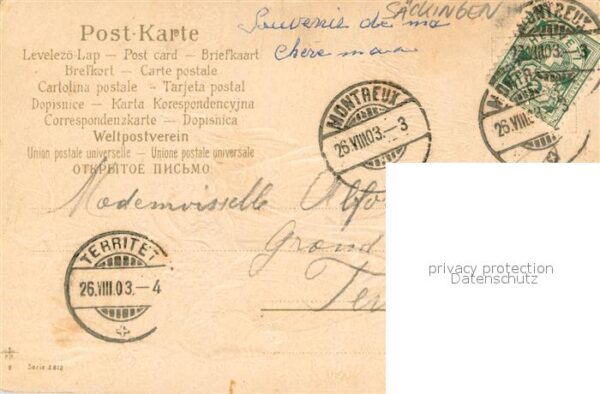 Post-Karte
Levelező-Lap — Post card — Briefkaart
Brefkort — Carte postale
Cartolina postale — Tarjeta postal
Dopisnice — Karta Korespondencyjna
Correspondenzkarte — Dopisnica
Weltpostverein
Union postale universelle — Unione postale universale
ОТКРЫТОЕ ПИСЬМО
SÄCKINGEN
Souvenir de ma
chère
MONTREUX
26.VIII.03.-3
MONTREUX
VIII.03. 3
MONTREUX
26.VIII.03.
Mademoiselle
Grand
TERRITET
26.VIII.03.-4
privacy protection
Datenschutz
Serie